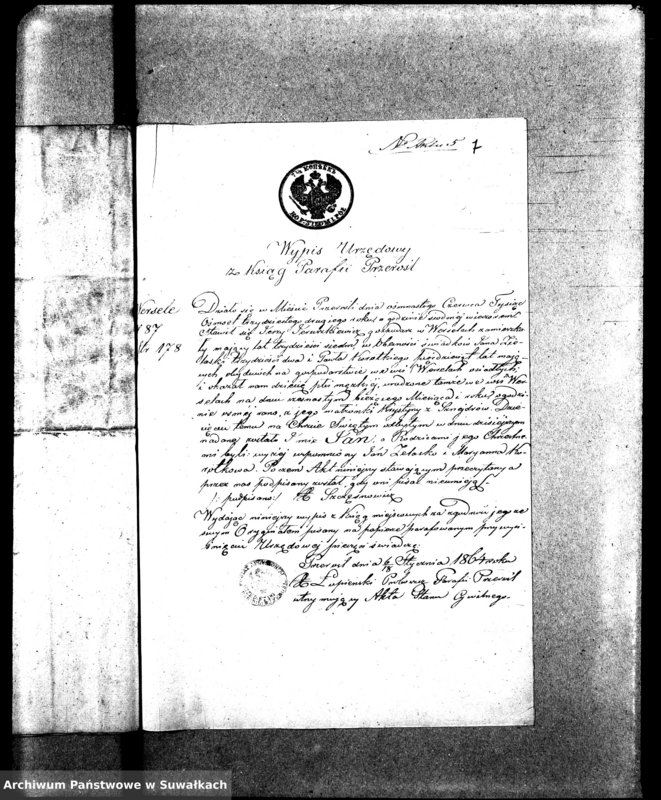 No 5 7
7½ КОПѢЕКЪ
Wypis Urzędowy
z Ksiąg Parafii Przerośl
Wersele
187
Nr 178
Działo się w Mieście Przerośli dnia ośmnastego Czerwca Tysiąc
Ośmset trzydziestego drugiego roku o godzinie siódmej wieczorem
Stawił się Jerzy gospodarz w Werselach zamieszka
ły mający lat trzydzieści siedm w obecności świadków Jana Ze
trzydzieści dwa i Pawła Korotkiego pięćdziesiąt lat mają
cych, obydwóch na gospodarstwie we wsi Werselach osiadłych,
i okazał nam dziecię płci męzkiej, urodzone tamże we wsi Wer
selach na dniu szesnastym bieżącego Miesiąca i roku o godzi
nie ósmej rano, z jego małżonki Krystyny z Dzie
cięciu temu na Chrzcie Świętym odbytym w dniu dzisiejszym
nadane zostało Imie Jan, a Rodzicami jego Chrzest
nemi byli: wyżej wspomniony Jan i Maryanna Ko
rotkowa. Poczem Akt niniejszy stawającym przeczytany a
przez nas podpisany został, gdyż oni pisać nieumieją.
/: podpisano :/ X Szczęsnowicz
Wydając niniejszy wypis z Ksiąg miejscowych za zgodność jego ze
swym Oryginałem pisany na papierze parafowanym przy wyci
śnięciu Urzędowej pieczęci świadczę.
Przerośl dnia 6/18 Stycznia 1864 roku
X Łupienski Proboszcz Parafii Przerośl
utrzymujący Akta Stanu Cywilnego.
Archiwum Państwowe w Suwałkach